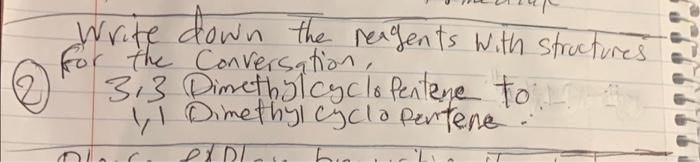 Write down the reagents with structures
for the Conversation,
② 3,3 Dimethylcyclopentene to
1,1 Dimethyl cyclo pentene.